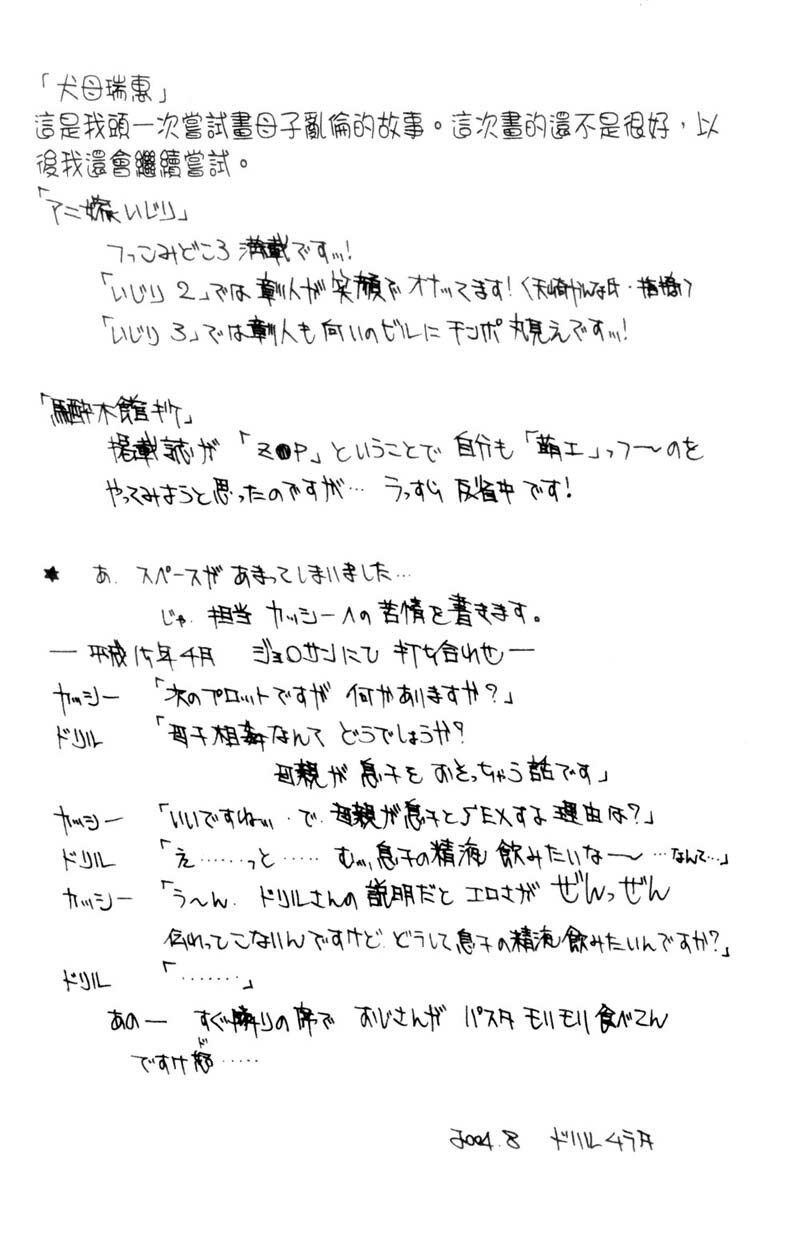 「犬母瑞惠」
這是我頭一次嘗試畫母子亂倫的故事。這次畫的還不是很好，以
後我還會繼續嘗試。
「アニ嫁いじり」
つっこみどころ満載ですッ!
「いじり2」では彰人が笑顔でオナッてます!
「いじり3」では彰人も向いのビルにチンポ丸見えですッ!
「馬酔木館
掲載誌が「Z●P」ということで自分も「萌エ」っつ〜のを
やってみようと思ったのですが… うっすら反省中です!
★ あ. スペースがあまってしまいました…
じゃ. 担当カッシーへの苦情を書きます。
― 平成15年4月 ジョ○サンにて 打ち合わせ ―
カッシー 「次のプロットですが 何かありますか?」
ドリル 「母子相姦なんて どうでしょうか?
母親が息子をおそっちゃう話です」
カッシー 「いいですねッ. で. 母親が息子とSEXする理由は?」
ドリル 「え……っと…… むッ, 息子の精液飲みたいな〜 …なんて…」
カッシー 「う〜ん. ドリルさんの説明だと エロさが ぜんっぜん
伝わってこないんですけど. どうして息子の精液飲みたいんですか?」
ドリル 「………」
あのー すぐ隣りの席で おじさんが パスタ モリモリ食べてん
ですけ怒……
ド
2004.8 ドリルムラタ